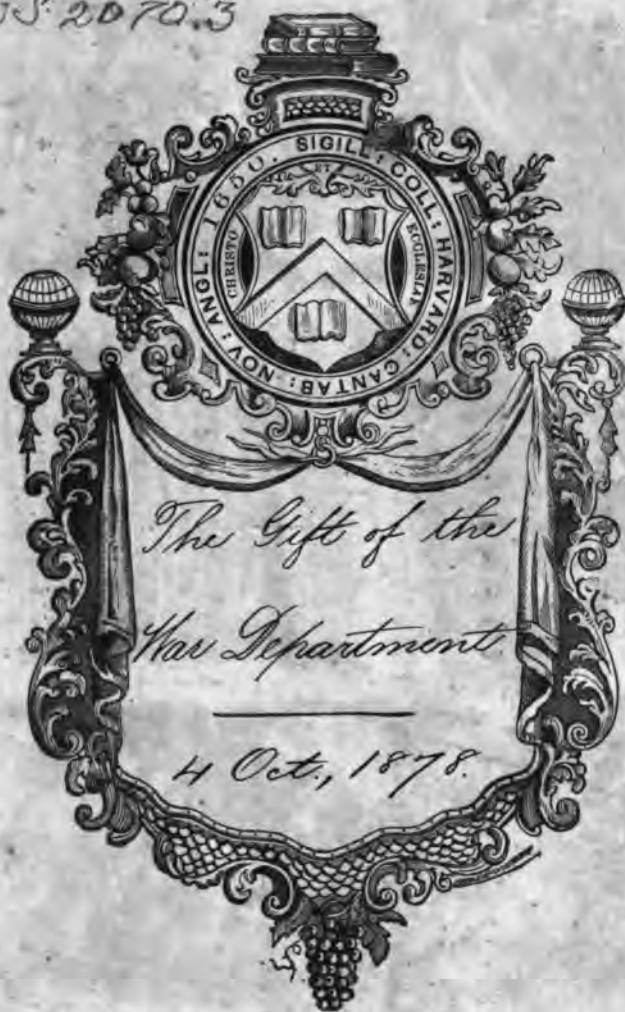 2070.3
SIGILL: COLL: HARVARD: CANTAB: NOV: ANGL: 1650.
CHRISTO
ET
ECCLESIAE
The Gift of the
War Department
4 Oct., 1878.